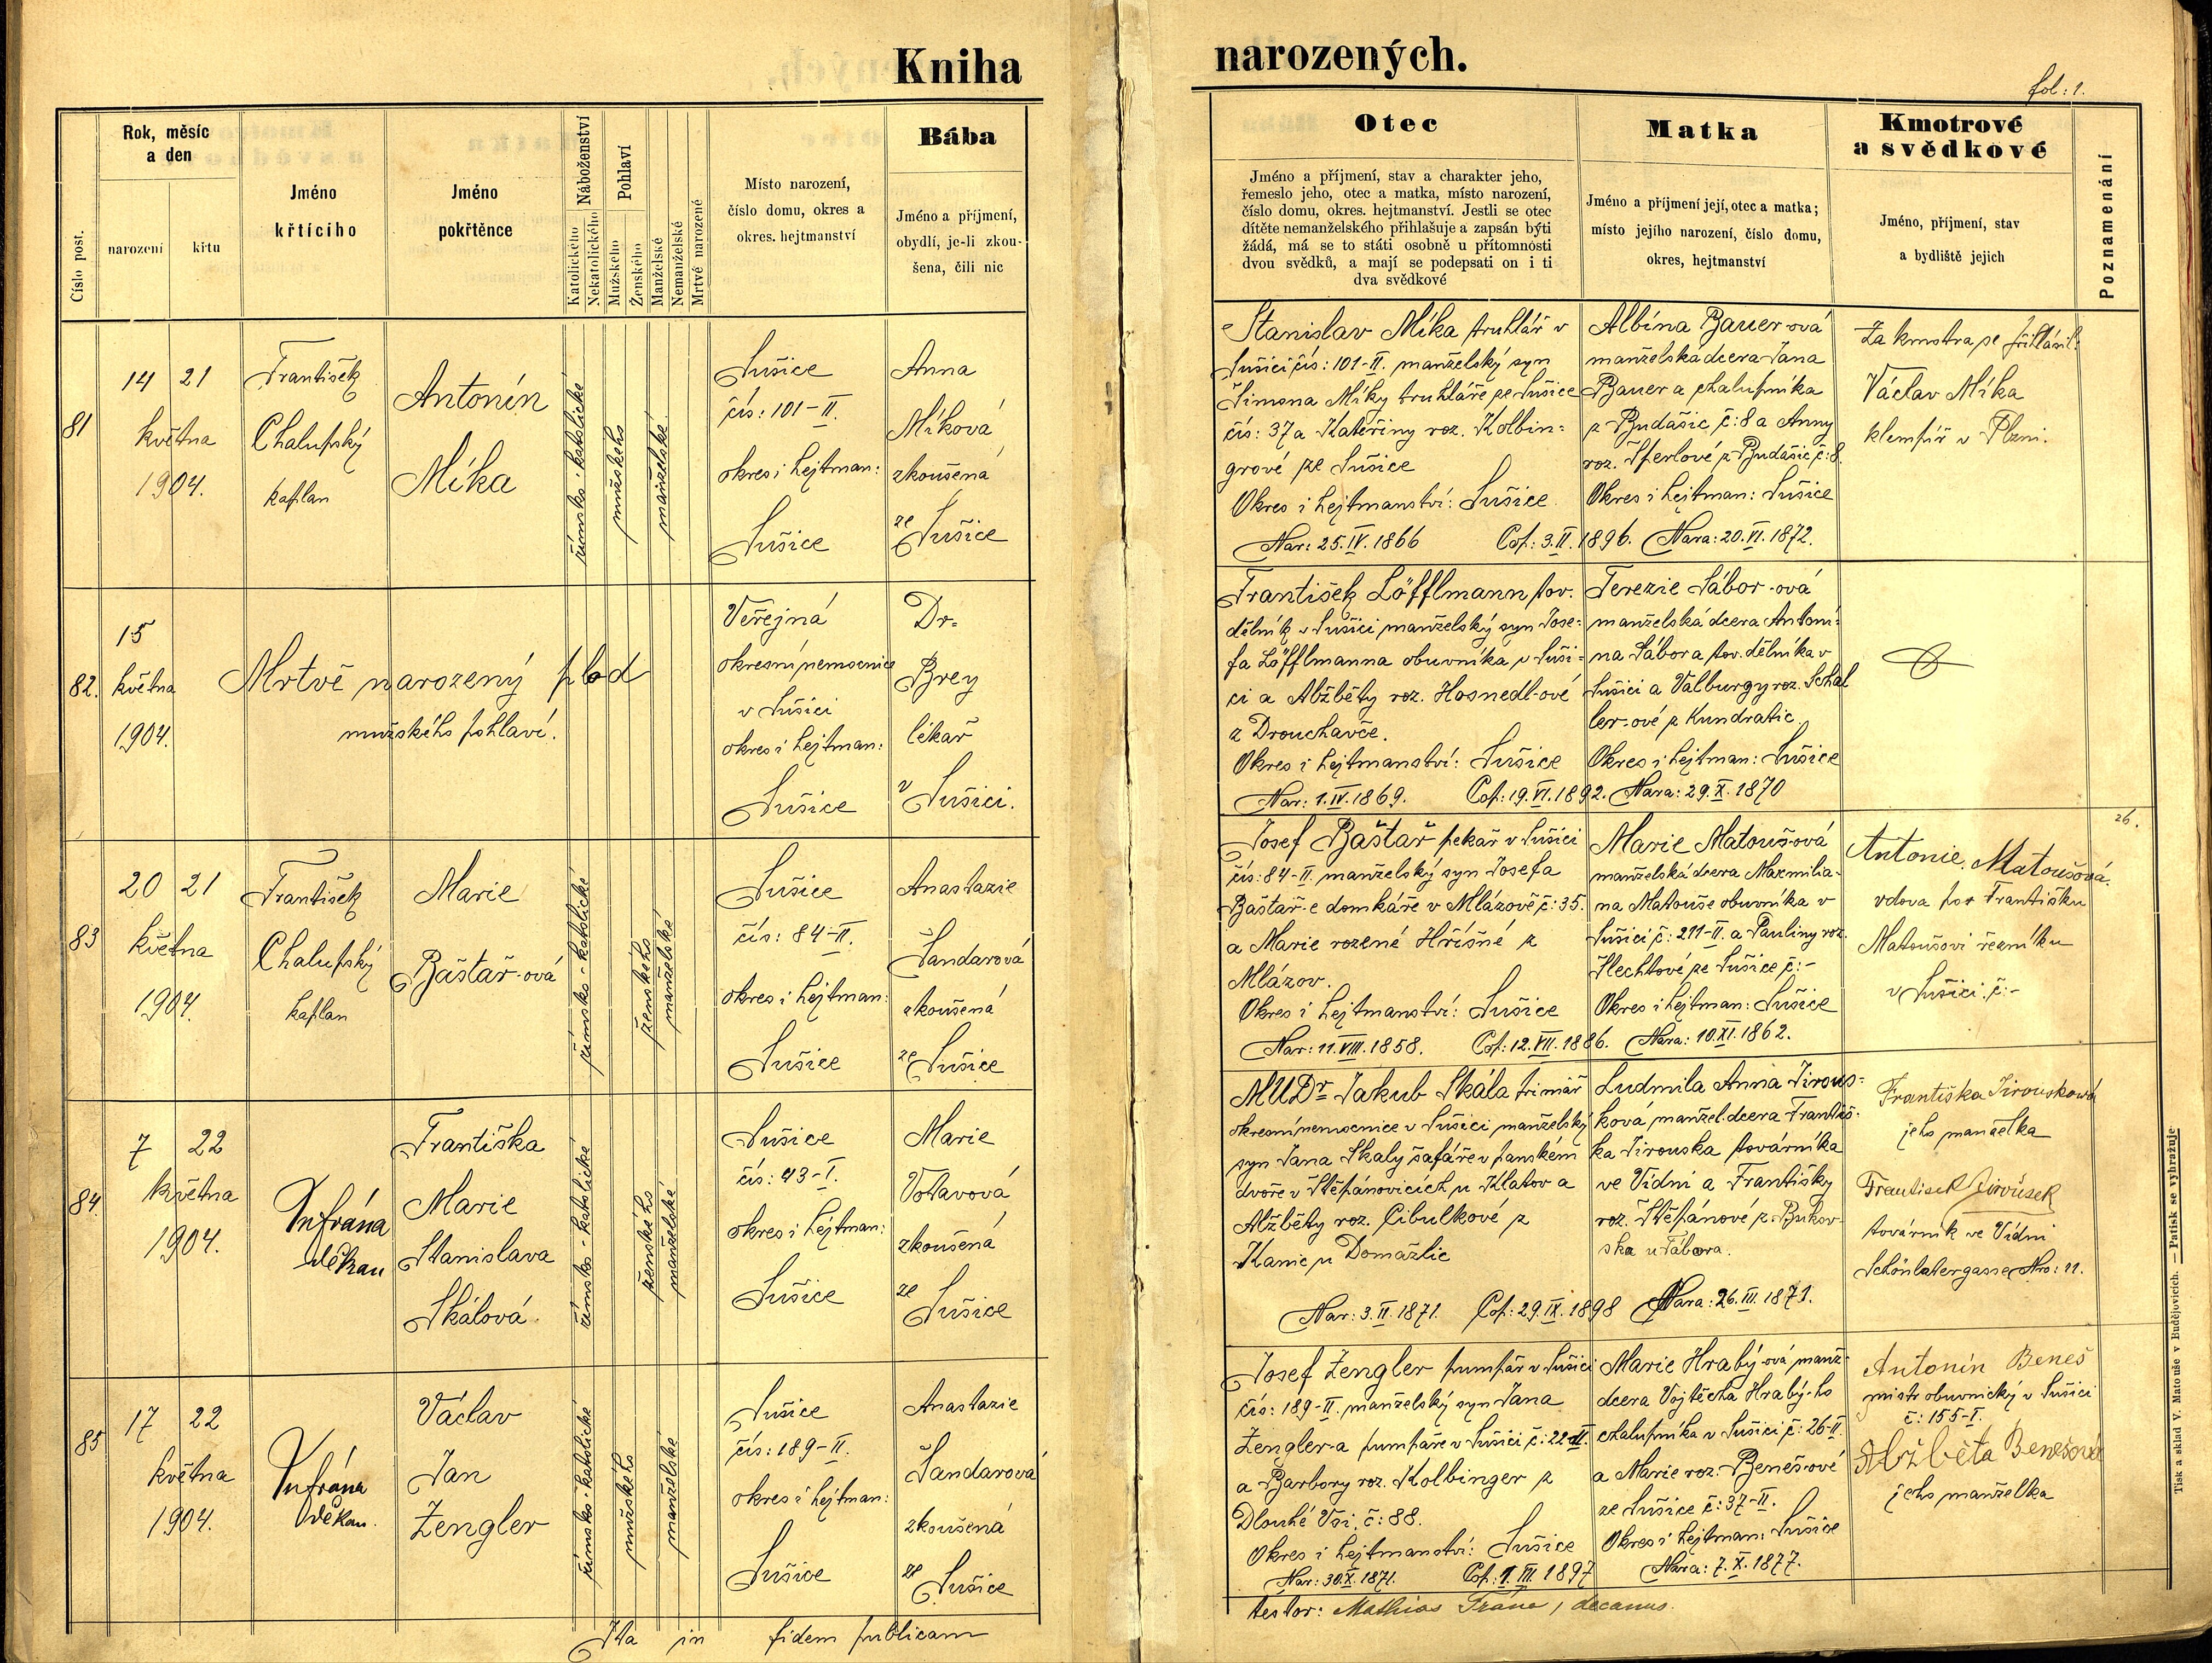 Kniha narozených.
fol: 1.
Číslo post.
Rok, měsíc a den
narození
křtu
Jméno křtícího
Jméno pokřtěnce
Náboženství
Katolického
Nekatolického
Pohlaví
Mužského
Ženského
Manželské
Nemanželské
Mrtvě narozené
Místo narození,
číslo domu, okres a
okres. hejtmanství
Bába
Jméno a příjmení,
obydlí, je-li zkou-
šena, čili nic
Otec
Jméno a příjmení, stav a charakter jeho,
řemeslo jeho, otec a matka, místo narození,
číslo domu, okres. hejtmanství. Jestli se otec
dítěte nemanželského přihlašuje a zapsán býti
žádá, má se to státi osobně u přítomnosti
dvou svědků, a mají se podepsati on i ti
dva svědkové
Matka
Jméno a příjmení její, otec a matka;
místo jejího narození, číslo domu,
okres, hejtmanství
Kmotrové
a svědkové
Jméno, příjmení, stav
a bydliště jejich
Poznamenání
81
14 21
května
1904.
František
Chalupský
kaplan
Antonín
Míka
římsko-katolické
mužského
manželské
Sušice
čís: 101-II.
okres i hejtman:
Sušice
Anna
Míková
zkoušená
ze Sušice
Stanislav Míka truhlář v
Sušici čís: 101-II. manželský syn
Šimona Míky truhláře ze Sušice
čís: 37 a Kateřiny roz. Kolbin=
grové ze Sušice
Okres i hejtmanství: Sušice
Nar: 25.IV.1866 Cop: 3.II.1896.
Albína Bauer-ová
manželská dcera Jana
Bauera chalupníka
z Budášic č: 8 a Anny
roz. Šperlové z Budášic č: 8.
Okres i hejtman: Sušice
Nara: 20.VI.1872.
Za kmotra se přihlásil:
Václav Míka
klempíř v Plzni.
82.
15
května
1904.
Mrtvě narozený plod
mužského pohlaví.
Veřejná
okresní nemocnice
v Sušici
okres i hejtman:
Sušice
Dr.
Brey
lékař
v Sušici.
František Löfflmann tov.
dělník v Sušici manželský syn Jose=
fa Löfflmanna obuvníka v Suši=
ci a Alžběty roz. Hosnedl-ové
z Drouhavče.
Okres i hejtmanství: Sušice
Nar: 1.IV.1869. Cop: 19.VI.1892.
Terezie Sábor-ová
manželská dcera Antoní=
na Sábora tov. dělníka v
Sušici a Valburgy roz. Schal
ler-ové z Kundratic.
Okres i hejtman: Sušice
Nara: 29.X.1870
83
20 21
května
1904.
František
Chalupský
kaplan
Marie
Baštař-ová
římsko-katolické
ženského
manželské
Sušice
čís: 84-II.
okres i hejtman:
Sušice
Anastazie
Šandarová
zkoušená
ze Sušice
Josef Baštař pekař v Sušici
čís: 84-II. manželský syn Josefa
Baštař-e domkáře v Mlázově č: 35.
a Marie rozené Hříšné z
Mlázov.
Okres i hejtmanství: Sušice
Nar: 11.VIII.1858. Cop: 12.VII.1886.
Marie Matouš-ová
manželská dcera Maxmilia-
na Matouše obuvníka v
Sušici č: 211-II. a Pauliny roz.
Šlechtové ze Sušice č:-
Okres i hejtman: Sušice
Nara: 10.XI.1862.
Antonie Matoušová
vdova po Františku
Matoušovi řezníku
v Sušici. č:-
26.
84.
7 22
května
1904.
děkan
Františka
Marie
Stanislava
Skálová
římsko-katolické
ženského
manželské
Sušice
čís: 43-I.
okres i hejtman:
Sušice
Marie
Votavová
zkoušená
ze
Sušice
MUDr Jakub Skála primář
okresní nemocnice v Sušici manželský
syn Jana Skaly šafáře v panském
dvoře v Štěpánovicích u Klatov a
Alžběty roz. Cibulkové z
Kanic u Domažlic
Nar: 3.II.1871. Cop: 29.IX.1898
Ludmila Anna Jirous=
ková, manžel. dcera Františ-
ka Jirouska továrníka
ve Vídni a Františky
roz. Štěpánové z Bukov-
ska u Tábora.
Nara: 26.III.1871.
Františka Jirousková
jeho manželka
František Jiroušek
továrník ve Vídni
Schönlatergasse Nro: 11.
85
17 22
května
1904.
děkan.
Václav
Jan
Zengler
římsko-katolické
mužského
manželské
Sušice
čís: 189-II.
okres i hejtman:
Sušice
Anastazie
Šandarová
zkoušená
ze Sušice
Josef Zengler pumpař v Sušici
čís: 189-II. manželský syn Jana
Zengler-a pumpaře v Sušici č: 22-II.
a Barbory roz. Kolbinger z
Dlouhé Vsi. č: 88.
Okres i hejtmanství: Sušice
Nar: 30.X.1871. Cop: 1.III.1897
Marie Hrabý-ová manž-
dcera Vojtěcha Hrabý-ho
chalupníka v Sušici č: 26-II.
a Marie roz. Beneš-ové
ze Sušice č: 37-II.
Okres i hejtman: Sušice
Nara: 7.X.1877.
Antonín Beneš
mistr obuvnický v Sušici
č: 155-I.
Alžběta Benešová
jeho manželka
Ita in fidem publicam
testor: Mathias Frána, decanus.
Tisk a sklad V. Matouše v Budějovicích. — Patisk se vyhražuje